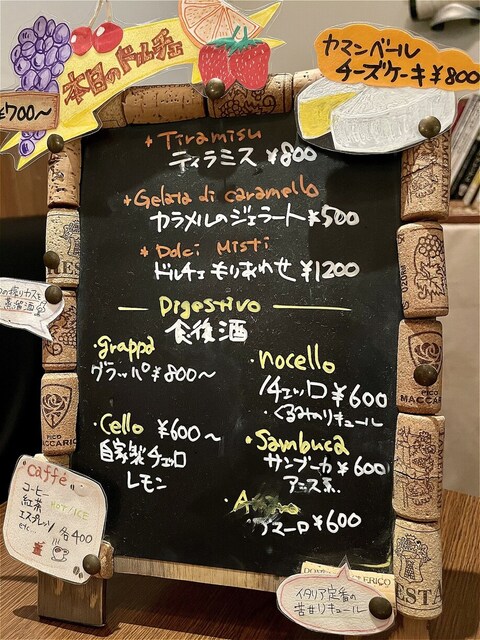 本日のドルチェ
¥700〜
カマンベール
チーズケーキ¥800
Tiramisu
ティラミス ¥800
Gelato di caramello
カラメルのジェラート¥500
Dolci Misti
ドルチェもりあわせ ¥1200
Digestivo
食後酒
・grappa
グラッパ ¥800〜
・nocello
ノチェッロ ¥600
・くるみのリキュール
・Cello ¥600〜
自家製チェッロ
レモン
・Sambuca
サンブーカ ¥600
アニス系.
アマーロ ¥600
蒸留酒
"caffé"
コーヒー
紅茶 HOT/ICE
エスプレッソ 各400
etc...
イタリア定番の
苦甘リキュール
MACCARIO
PICO
MACCARIO
ESTA